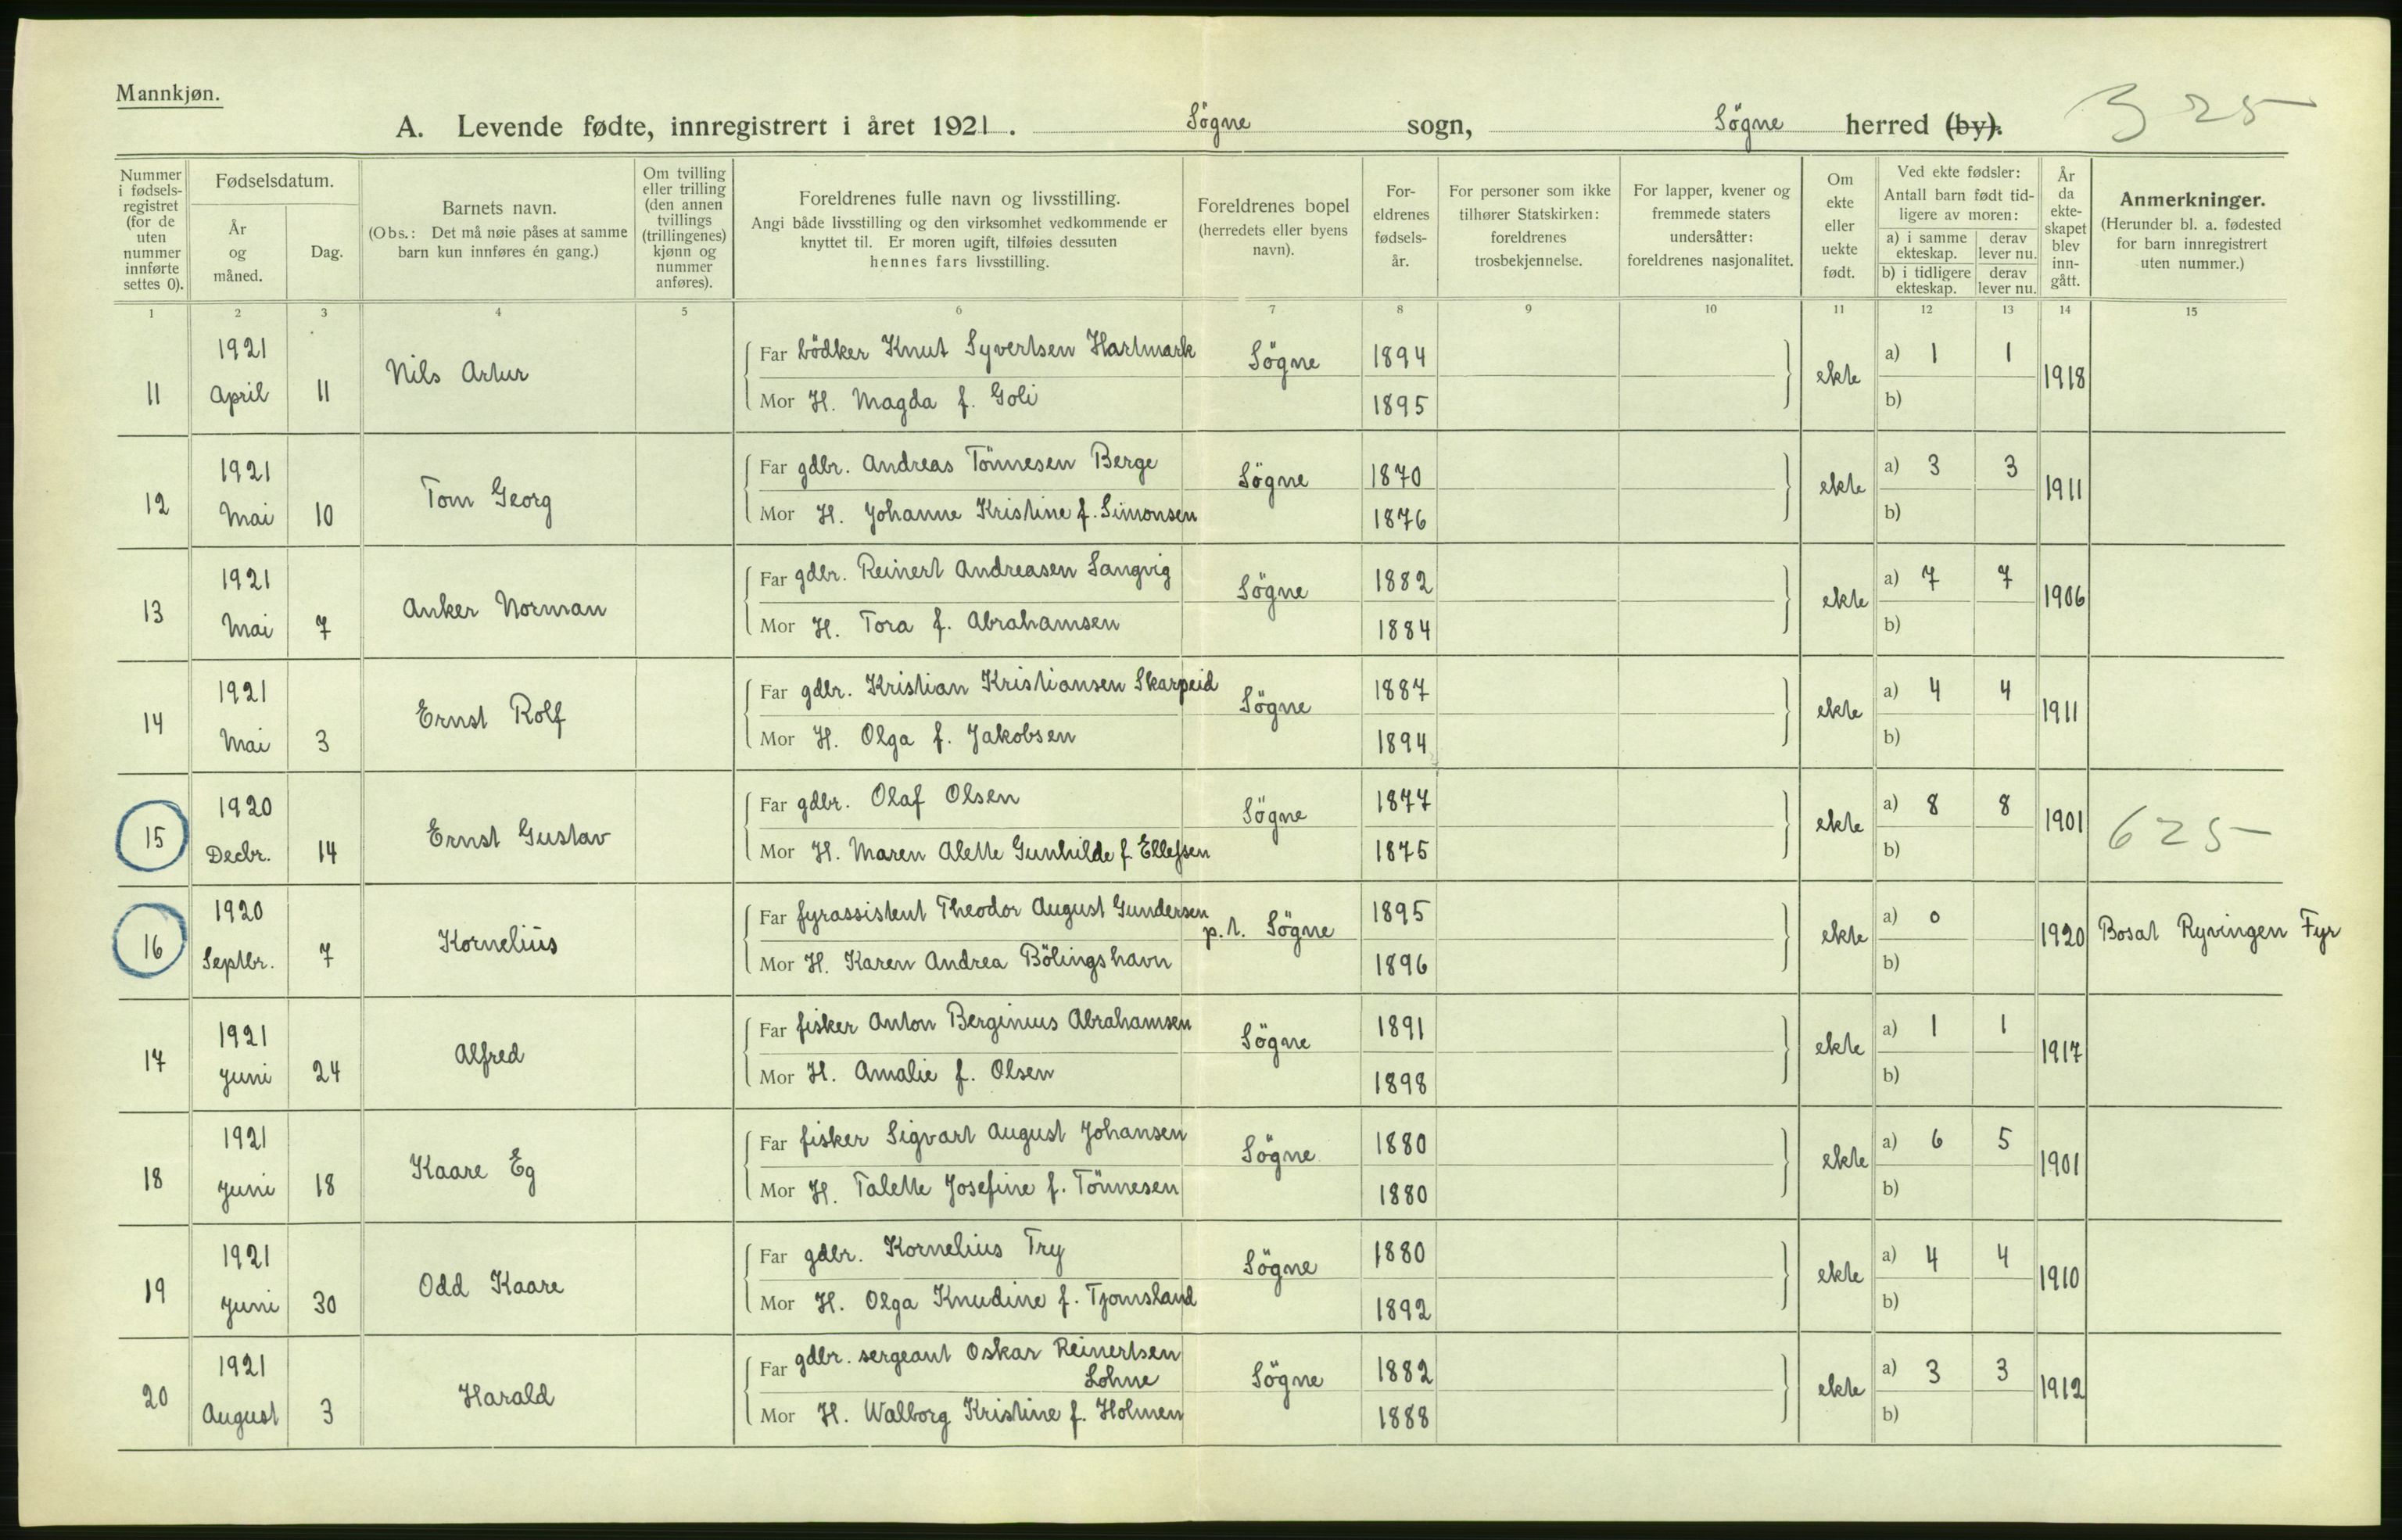 Mannkjøn.
A. Levende fødte, innregistrert i året 1921. Sögne sogn, Sögne herred (by).
325
Nummer i fødsels-registret (for de uten nummer innførte settes 0).
Fødselsdatum.
År og måned.
Dag.
Barnets navn.
(Obs.: Det må nøie påses at samme barn kun innføres én gang.)
Om tvilling eller trilling (den annen tvillings (trillingenes) kjønn og nummer anføres).
Foreldrenes fulle navn og livsstilling.
Angi både livsstilling og den virksomhet vedkommende er knyttet til. Er moren ugift, tilføies dessuten hennes fars livsstilling.
Foreldrenes bopel (herredets eller byens navn).
For-eldrenes fødsels-år.
For personer som ikke tilhører Statskirken: foreldrenes trosbekjennelse.
For lapper, kvener og fremmede staters undersåtter: foreldrenes nasjonalitet.
Om ekte eller uekte født.
Ved ekte fødsler: Antall barn født tid-ligere av moren:
a) i samme ekteskap. derav lever nu.
b) i tidligere ekteskap. derav lever nu.
År da ekte-skapet blev inn-gått.
Anmerkninger.
(Herunder bl. a. fødested for barn innregistrert uten nummer.)
1 2 3 4 5 6 7 8 9 10 11 12 13 14 15
11 1921 April 11 Nils Artur
Far bödker Knut Syvertsen Hartmark Sögne 1894 ekte a) 1 1 1918
Mor H. Magda f. Goli 1895 b)
12 1921 Mai 10 Tom Georg
Far gdbr. Andreas Tönnesen Berge Sögne 1870 ekte a) 3 3 1911
Mor H. Johanne Kristine f. Simonsen 1876 b)
13 1921 Mai 7 Anker Norman
Far gdbr. Reinert Andreasen Langvig Sögne 1882 ekte a) 7 7 1906
Mor H. Tora f. Abrahamsen 1884 b)
14 1921 Mai 3 Ernst Rolf
Far gdbr. Kristian Kristiansen Skarpeid Sögne 1887 ekte a) 4 4 1911
Mor H. Olga f. Jakobsen 1894 b)
15 1920 Decbr. 14 Ernst Gustav
Far gdbr. Olaf Olsen Sögne 1877 ekte a) 8 8 1901 625
Mor H. Maren Alette Gunhilde f Ellefsen 1875 b)
16 1920 Septbr. 7 Kornelius
Far fyrassistent Theodor August Gundersen p.t. Sögne 1895 ekte a) 0 1920 Bosat Ryvingen Fyr
Mor H. Karen Andrea Bölingshavn 1896 b)
17 1921 Juni 24 Alfred
Far fisker Anton Berginius Abrahamsen Sögne 1891 ekte a) 1 1 1917
Mor H. Amalie f. Olsen 1898 b)
18 1921 Juni 18 Kaare Eg
Far fisker Sigvart August Johansen Sögne 1880 ekte a) 6 5 1901
Mor H. Talette Josefine f. Tönnesen 1880 b)
19 1921 Juni 30 Odd Kaare
Far gdbr. Kornelius Try Sögne 1880 ekte a) 4 4 1910
Mor H. Olga Knudine f. Tjomsland 1892 b)
20 1921 August 3 Harald
Far gdbr. sergeant Oskar Reinertsen Lohne Sögne 1882 ekte a) 3 3 1912
Mor H. Walborg Kristine f. Holmen 1888 b)